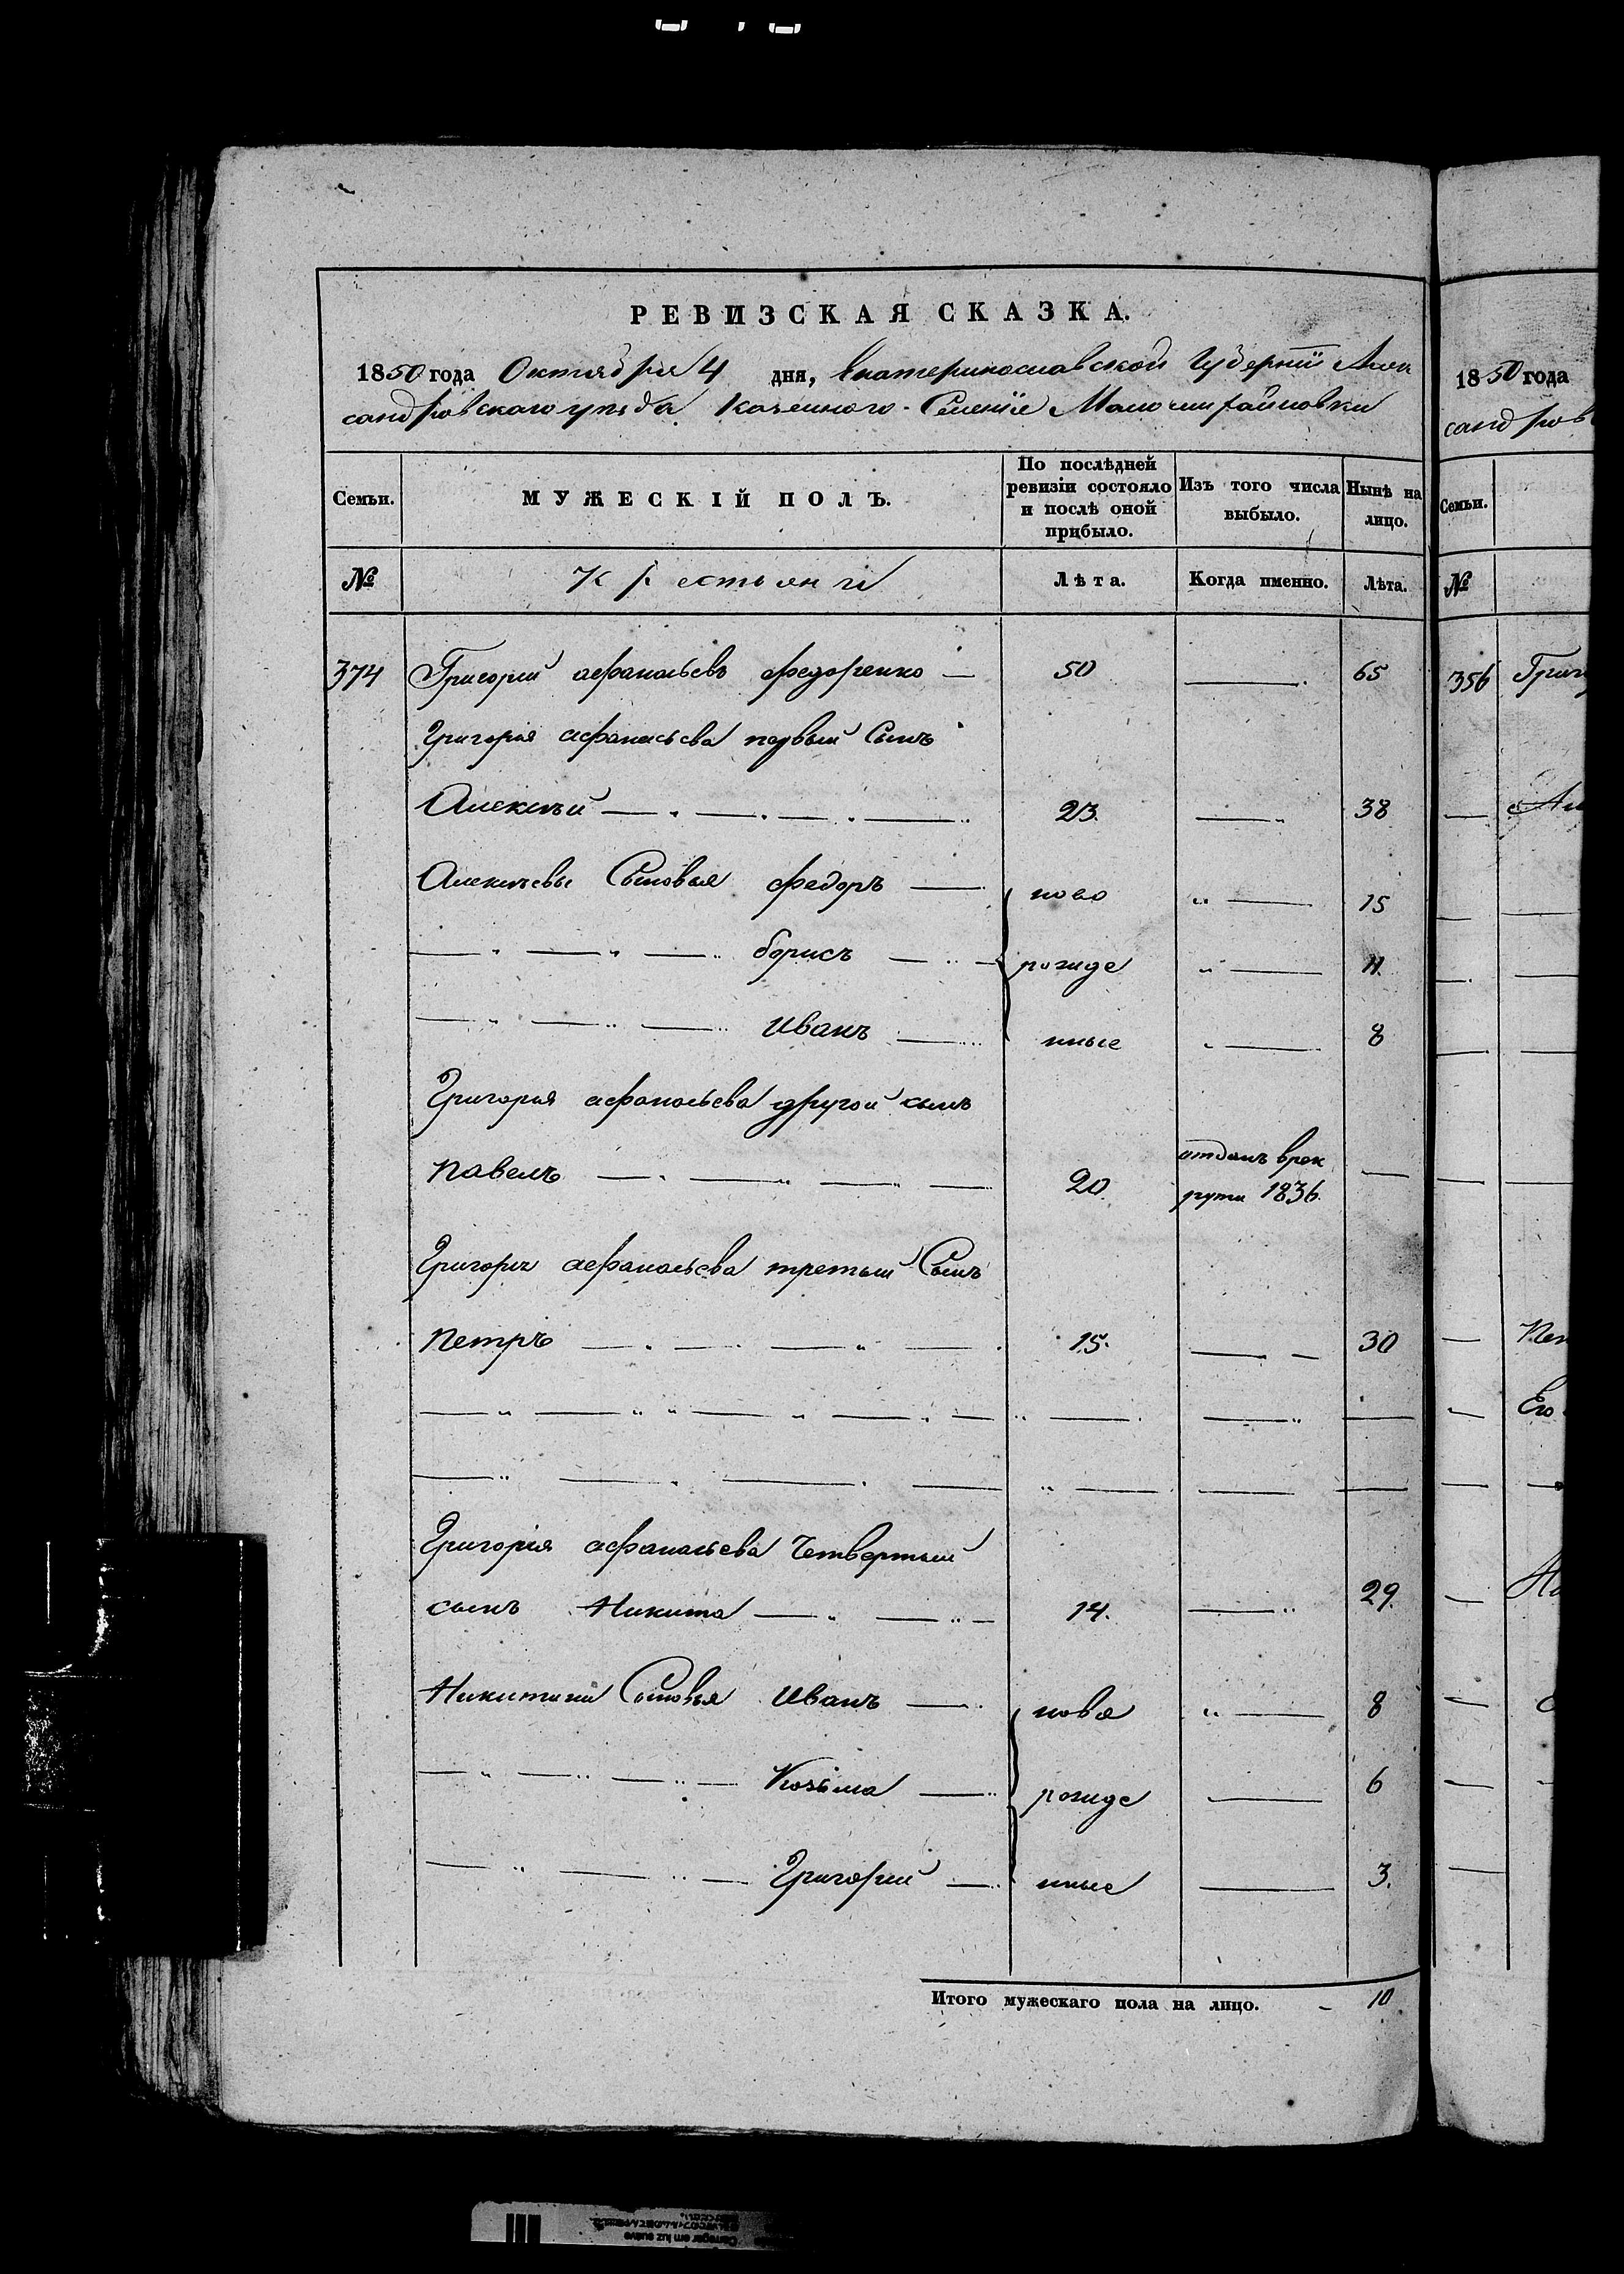 РЕВИЗСКАЯ СКАЗКА.
1850 года Октября 4 дня, Екатеринославской Губернïи Алек
сандровскаго уѣзда Казенного Селенïе Маломихайловки
Семьи. МУЖЕСКІЙ ПОЛЪ. По послѣдней ревизіи состояло и послѣ оной прибыло. Изъ того числа выбыло. Нынѣ на лицо.
№ Крестьяни Лѣта. Когда именно. Лѣта.
374 Григорий афанасьевъ федоренко — 50 — 65
Григорія афанасьева первый Сынъ
Алексѣй — 23. — 38
Алексѣевы Сыновья федоръ — ново " — 15
— " — " — борисъ — рожде " — 11.
— " — " — Иванъ — нные " — 8
Григорія афанасьева другой сынъ
Павелъ — 20. отданъ врек —
рути 1836.
Григорія афанасьева третьий Сынъ
Петръ — 15. — 30
Григорія афанасьева Четвертый
сынъ Никита — 14. — 29.
Никитини Сыновья Иванъ — ново " — 8
— " — " — Козьма — рожде — 6
— " — " — Григорий — нные — 3.
Итого мужескаго пола на лицо. — 10
1850 года
сандров
Семьи.
№
356 Григ
Ал
Пет
Его
Ни